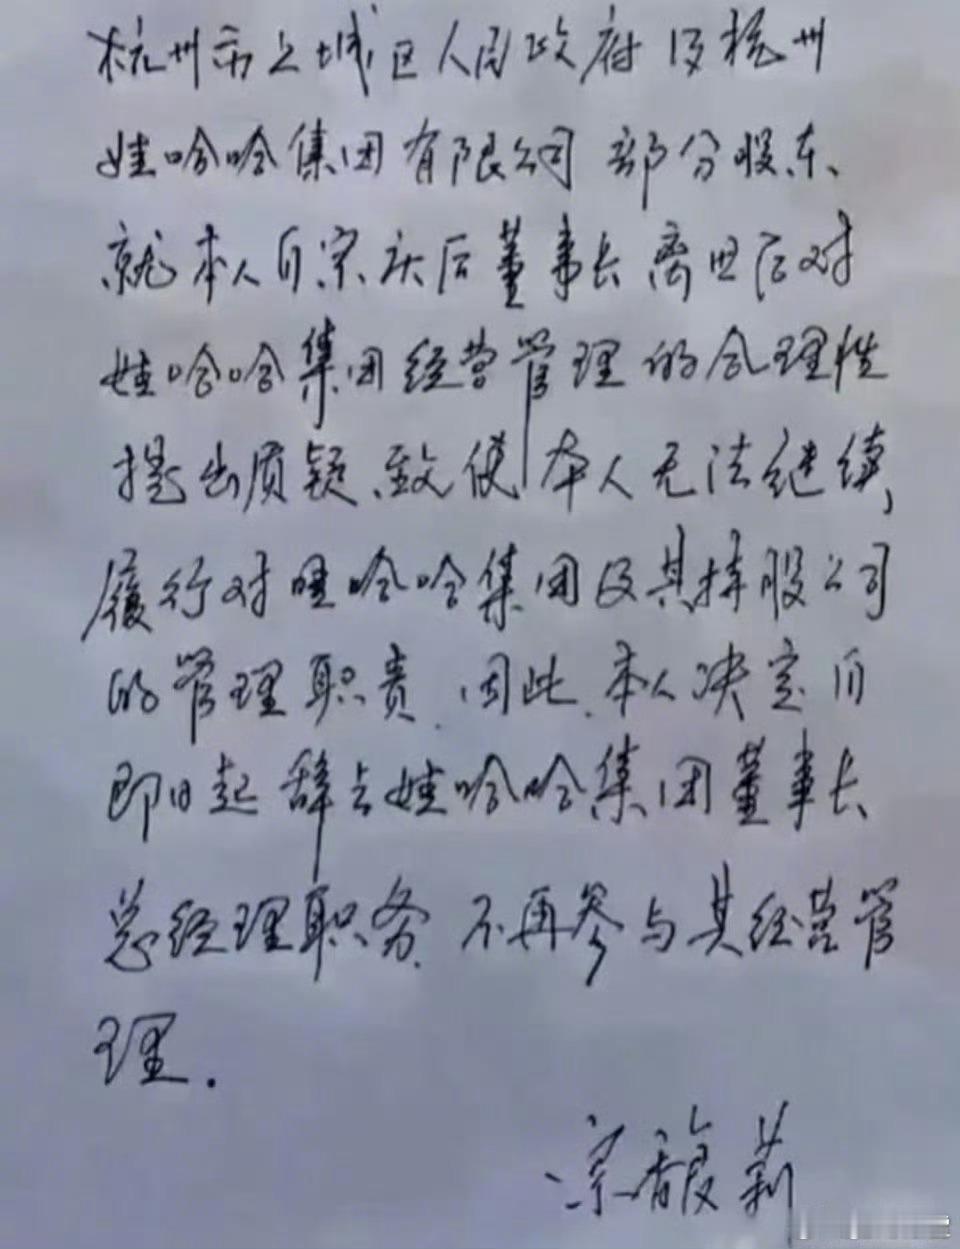 杭州市上城区人民政府及杭州
娃哈哈集团有限公司部分股东、
就本人自宗庆后董事长离世后对
娃哈哈集团经营管理的合理性
提出质疑、致使本人无法继续,
履行对哇哈哈集团及其持股公司
的管理职责、因此、本人决定自
即日起辞去娃哈哈集团董事长
总经理职务、不再参与其经营管
理.
宗馥莉